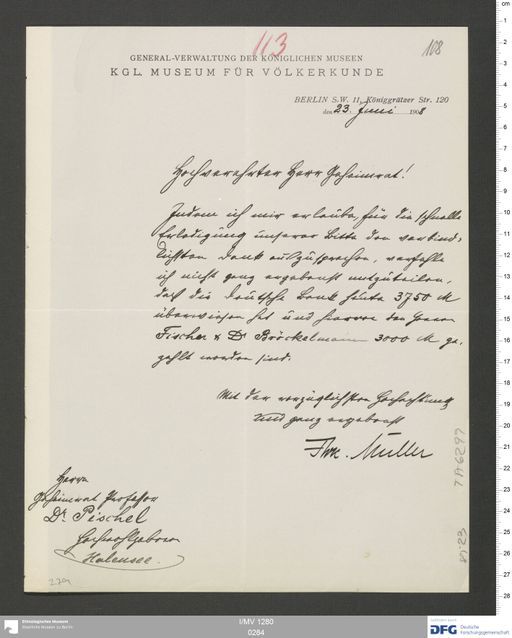 113
108
GENERAL-VERWALTUNG DER KÖNIGLICHEN MUSEEN
KGL. MUSEUM FÜR VÖLKERKUNDE
BERLIN S.W. 11, Königgrätzer Str. 120
den 23. Juni 1908
Hochverehrter Herr Geheimrat!
Indem ich mir erlaube, für die schnelle
Erledigung unserer Bitte den verbind-
lichsten Dank auszusprechen, verfehle
ich nicht ganz ergebenst mitzuteilen,
daß die Deutsche Bank heute 3750 M
überwiesen hat und hiervon den Herren
Fischer & Dr Bröckelmann 3000 M ge-
zahlt worden sind.
Mit der vorzüglichsten Hochachtung
und ganz ergebenst
Müller
Herrn
Geheimrat Professor
Dr. Pischel
Hochwohlgeboren
Halensee.
Ethnologisches Museum
Staatliche Museen zu Berlin
I/MV 1280
0284
DFG Deutsche
Forschungsgemeinschaft
cm
0
1
2
3
4
5
6
7
8
9
10
11
12
13
14
15
16
17
18
19
20
21
22
23
24
25
26
27
28